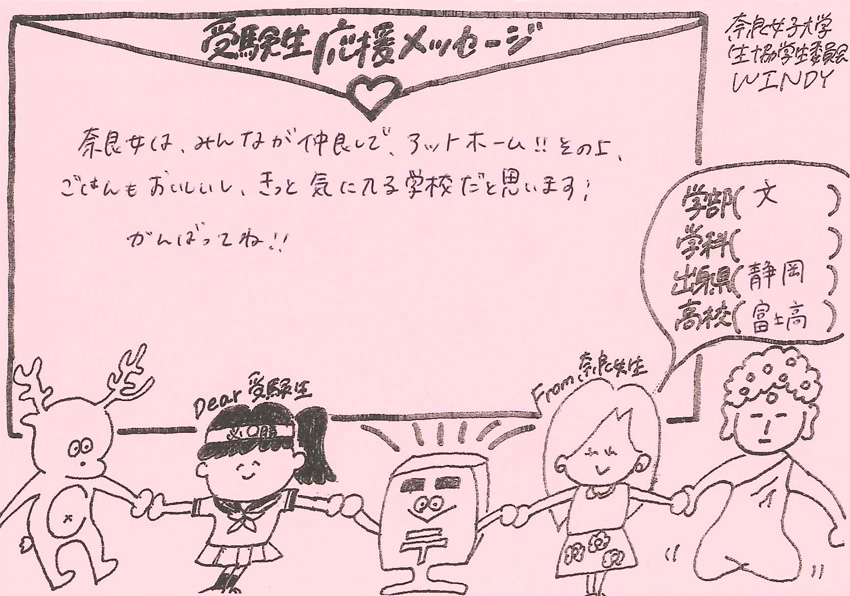 受験生応援メッセージ
奈良女子大学
生協学生委員会
WINDY
奈良女は、みんなが仲良しで、アットホーム!!その上、
ごはんもおいしいし、きっと気に入る学校だと思います!
がんばってね!!
学部(文)
学科( )
出身県(静岡)
高校(富士高)
Dear 受験生
From 奈良女生
必勝
〒